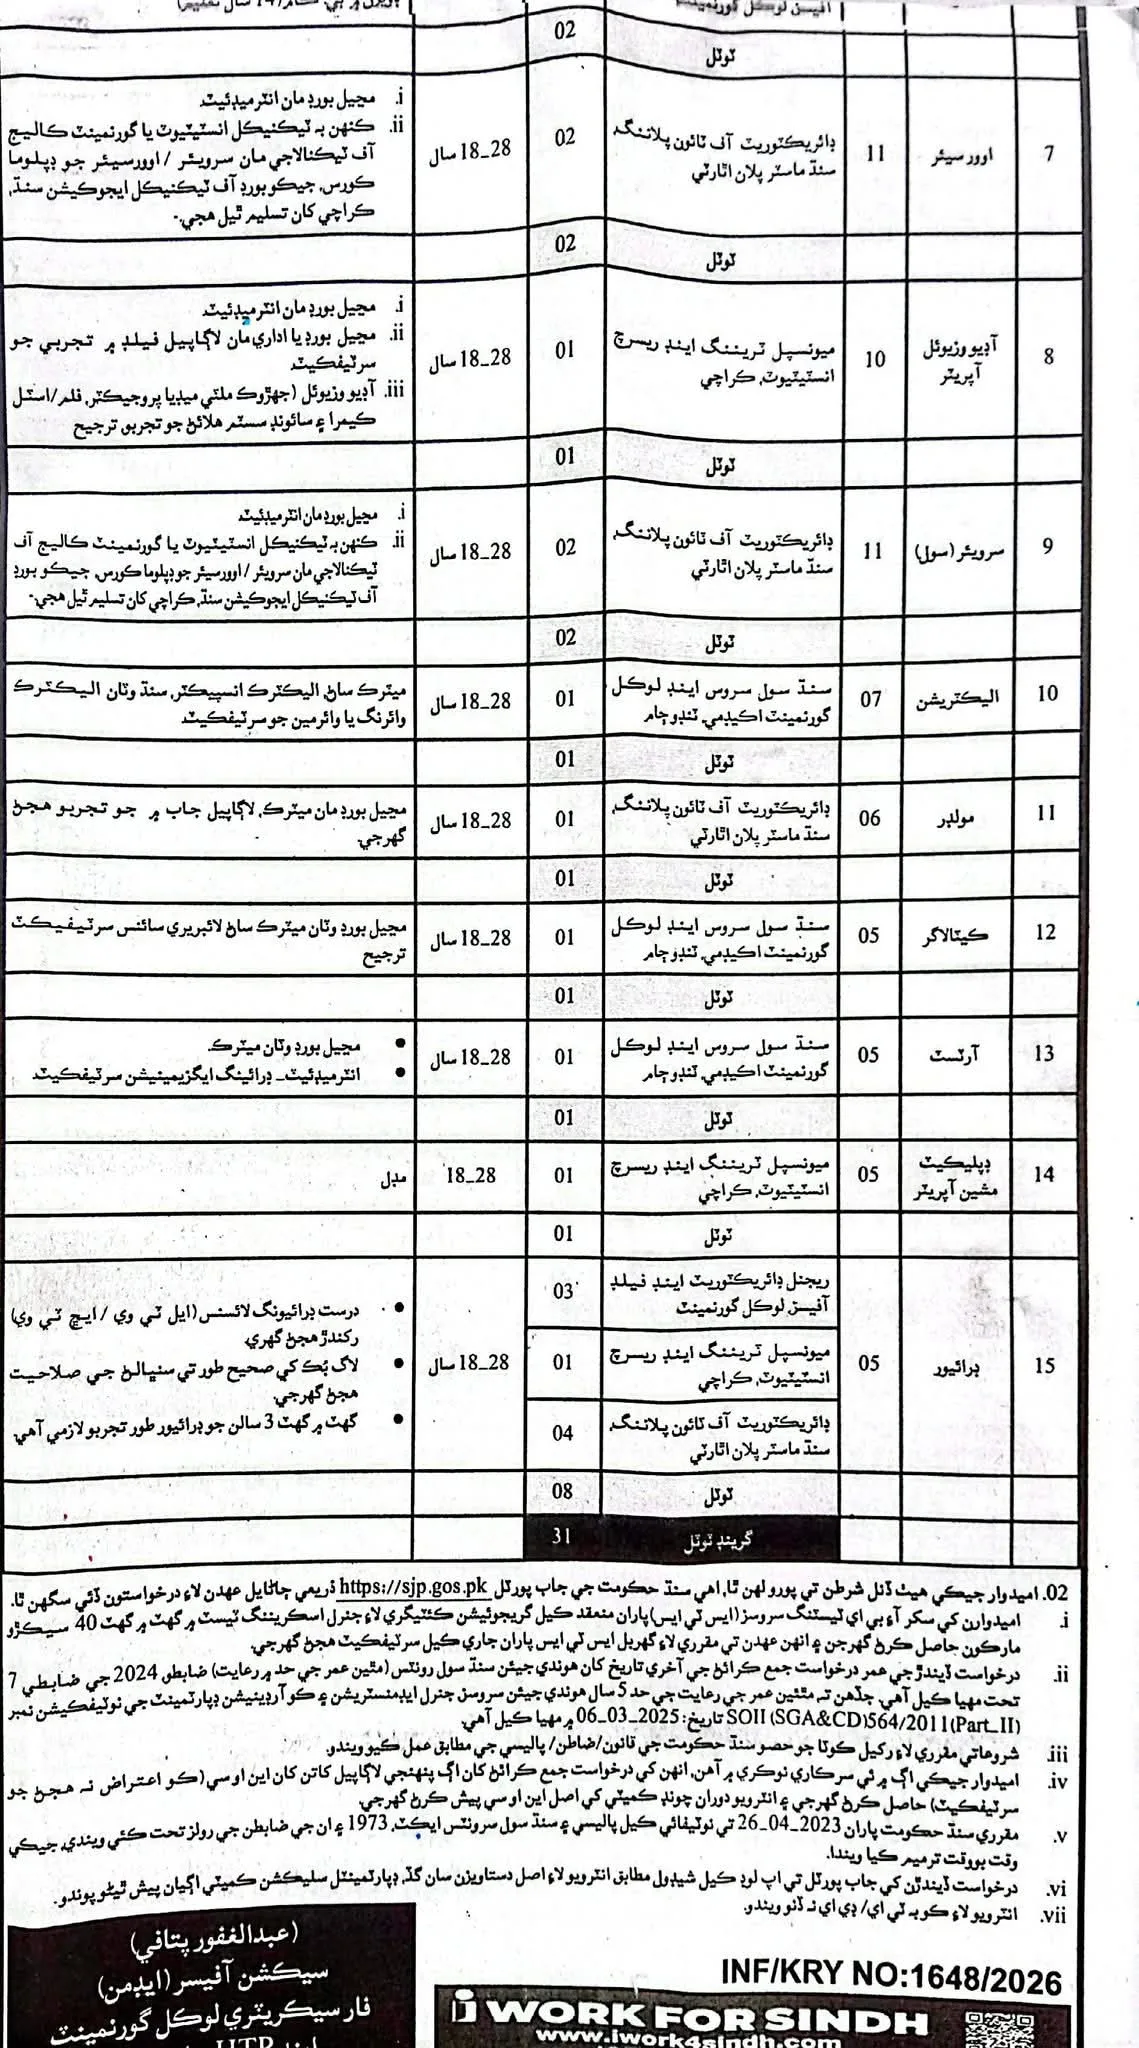 آفيسن لوڪل گورنمينٽ
02
ٽوٽل
7
اوورسيئر
11
ڊائريڪٽوريٽ آف ٽائون پلاننگ،
سنڌ ماسٽر پلان اٿارٽي
02
18_28 سال
i. مڃيل بورڊ مان انٽرميڊيئيٽ
ii. ڪنهن به ٽيڪنيڪل انسٽيٽيوٽ يا گورنمينٽ ڪاليج
آف ٽيڪنالاجي مان سرويئر / اوورسيئر جو ڊپلوما
ڪورس، جيڪو بورڊ آف ٽيڪنيڪل ايجوڪيشن سنڌ،
ڪراچي کان تسليم ٿيل هجي.-
02
ٽوٽل
8
آڊيو وزيوئل
آپريٽر
10
ميونسپل ٽريننگ اينڊ ريسرچ
انسٽيٽيوٽ، ڪراچي
01
18_28 سال
i. مڃيل بورڊ مان انٽرميڊيئيٽ
ii. مڃيل بورڊ يا اداري مان لاڳاپيل فيلڊ ۾ تجربي جو
سرٽيفڪيٽ
iii. آڊيو وزيوئل (جهڙوڪ ملٽي ميڊيا پروجيڪٽر، فلم/اسٽل
ڪيمرا ۽ سائونڊ سسٽم هلائڻ جو تجربو، ترجيح
01
ٽوٽل
9
سرويئر (سول)
11
ڊائريڪٽوريٽ آف ٽائون پلاننگ،
سنڌ ماسٽر پلان اٿارٽي
02
18_28 سال
i. مڃيل بورڊ مان انٽرميڊيئيٽ
ii. ڪنهن به ٽيڪنيڪل انسٽيٽيوٽ يا گورنمينٽ ڪاليج آف
ٽيڪنالاجي مان سرويئر / اوورسيئر جو ڊپلوما ڪورس، جيڪو بورڊ
آف ٽيڪنيڪل ايجوڪيشن سنڌ، ڪراچي کان تسليم ٿيل هجي.-
02
ٽوٽل
10
اليڪٽريشن
07
سنڌ سول سروس اينڊ لوڪل
گورنمينٽ اڪيڊمي، ٽنڊوڄام
01
18_28 سال
ميٽرڪ ساڻ، اليڪٽرڪ انسپيڪٽر، سنڌ وٽان اليڪٽرڪ
وائرنگ يا وائرمين جو سرٽيفڪيٽ
01
ٽوٽل
11
مولڊر
06
ڊائريڪٽوريٽ آف ٽائون پلاننگ،
سنڌ ماسٽر پلان اٿارٽي
01
18_28 سال
مڃيل بورڊ مان ميٽرڪ، لاڳاپيل جاب ۾ جو تجربو هجڻ
گهرجي.
01
ٽوٽل
12
ڪيٽالاگر
05
سنڌ سول سروس اينڊ لوڪل
گورنمينٽ اڪيڊمي، ٽنڊوڄام
01
18_28 سال
مڃيل بورڊ وٽان ميٽرڪ ساڻ لائبريري سائنس سرٽيفيڪيٽ
ترجيح
01
ٽوٽل
13
آرٽسٽ
05
سنڌ سول سروس اينڊ لوڪل
گورنمينٽ اڪيڊمي، ٽنڊوڄام
01
18_28 سال
• مڃيل بورڊ وٽان ميٽرڪ.
• انٽرميڊيئيٽ_ ڊرائينگ ايگزيمينيشن سرٽيفڪيٽ
01
ٽوٽل
14
ڊپليڪيٽ
مشين آپريٽر
05
ميونسپل ٽريننگ اينڊ ريسرچ
انسٽيٽيوٽ، ڪراچي
01
18_28
مڊل
01
ٽوٽل
15
ڊرائيور
05
ريجنل ڊائريڪٽوريٽ اينڊ فيلڊ
آفيسز، لوڪل گورنمينٽ
03
ميونسپل ٽريننگ اينڊ ريسرچ
انسٽيٽيوٽ، ڪراچي
01
ڊائريڪٽوريٽ آف ٽائون پلاننگ،
سنڌ ماسٽر پلان اٿارٽي
04
18_28 سال
• درست ڊرائيونگ لائسنس (ايل ٽي وي / ايڇ ٽي وي)
رکندڙ هجڻ گهري.
• لاگ بُڪ کي صحيح طور تي سنڀالڻ جي صلاحيت
هجڻ گهرجي.
• گهٽ ۾ گهٽ 3 سالن جو ڊرائيور طور تجربو لازمي آهي.
08
ٽوٽل
31
گرينڊ ٽوٽل
02. اميدوار جيڪي هيٺ ڏنل شرطن تي پورو لهن ٿا، اهي سنڌ حڪومت جي جاب پورٽل https://sjp.gos.pk ذريعي ڄاڻايل عهدن لاءِ درخواستون ڏئي سگهن ٿا.
i. اميدوارن کي سکر آءِ بي اي ٽيسٽنگ سروسز (ايس ٽي ايس) پاران منعقد ڪيل گريجوئيشن ڪئٽيگري لاءِ جنرل اسڪريننگ ٽيسٽ ۾ گهٽ ۾ گهٽ 40 سيڪڙو
مارڪون حاصل ڪرڻ گهرجن ۽ انهن عهدن تي مقرري لاءِ گهربل ايس ٽي ايس پاران جاري ڪيل سرٽيفڪيٽ هجڻ گهرجي.
ii. درخواست ڏيندڙ جي عمر درخواست جمع ڪرائڻ جي آخري تاريخ کان هوندي جيئن سنڌ سول رونٽس (مٿين عمر جي حد ۾ رعايت) ضابطو، 2024 جي ضابطي 7
تحت مهيا ڪيل آهي. جڏهن ته مٿئين عمر جي رعايت جي حد 5 سال هوندي جيئن سروسز، جنرل ايڊمنسٽريشن ۽ ڪوآرڊينيشن ڊپارٽمينٽ جي نوٽيفڪيشن نمبر
SOII (SGA&CD)564/2011(Part_II) تاريخ: 2025_03_06 ۾ مهيا ڪيل آهي.
iii. شروعاتي مقرري لاءِ رکيل ڪوٽا جو حصو سنڌ حڪومت جي قانون/ضابطن/ پاليسي جي مطابق عمل ڪيو ويندو.
iv. اميدوار جيڪي اڳ ۾ ئي سرڪاري نوڪري ۾ آهن، انهن کي درخواست جمع ڪرائڻ کان اڳ پنهنجي لاڳاپيل کاتن کان اين او سي (ڪو اعتراض نه هجڻ جو
سرٽيفڪيٽ) حاصل ڪرڻ گهرجي ۽ انٽرويو دوران چونڊ ڪميٽي کي اصل اين او سي پيش ڪرڻ گهرجي.
v. مقرري سنڌ حڪومت پاران 2023_04_26 تي نوٽيفائي ڪيل پاليسي ۽ سنڌ سول سرونٽس ايڪٽ، 1973 ۽ ان جي ضابطن جي رولز تحت ڪئي ويندي، جيڪي
وقت بوقت ترميم ڪيا ويندا.
vi. درخواست ڏيندڙن کي جاب پورٽل تي اپ لوڊ ڪيل شيڊول مطابق انٽرويو لاءِ اصل دستاويزن سان گڏ، ڊپارٽمينٽل سليڪشن ڪميٽي اڳيان پيش ٿيڻو پوندو.
vii. انٽرويو لاءِ ڪو به ٽي اي/ ڊي اي نه ڏنو ويندو.
(عبدالغفور پتافي)
سيڪشن آفيسر (ايڊمن)
فار سيڪريٽري لوڪل گورنمينٽ
INF/KRY NO:1648/2026
i WORK FOR SINDH
www.iwork4sindh.com